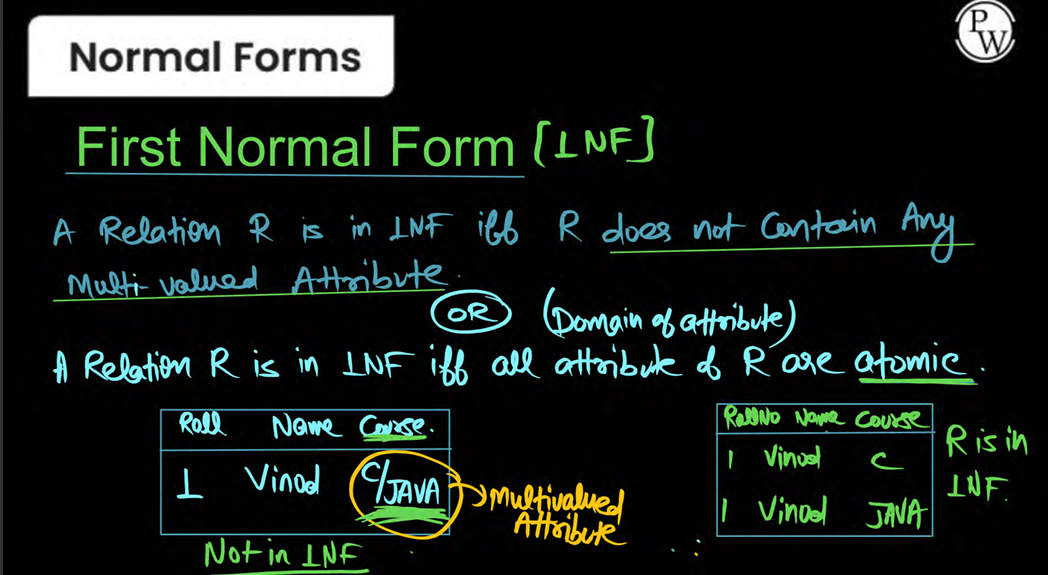 PW
Normal Forms
First Normal Form [1NF]
A Relation R is in 1NF iff R does not Contain Any
Multi-valued Attribute.
OR (Domain of attribute)
A Relation R is in 1NF iff all attribute of R are atomic.
Roll Name Course.
1 Vinod C/JAVA
→ Multivalued
Attribute
Not in 1NF
RollNo Name Course
1 Vinod C
1 Vinod JAVA
R is in
1NF.